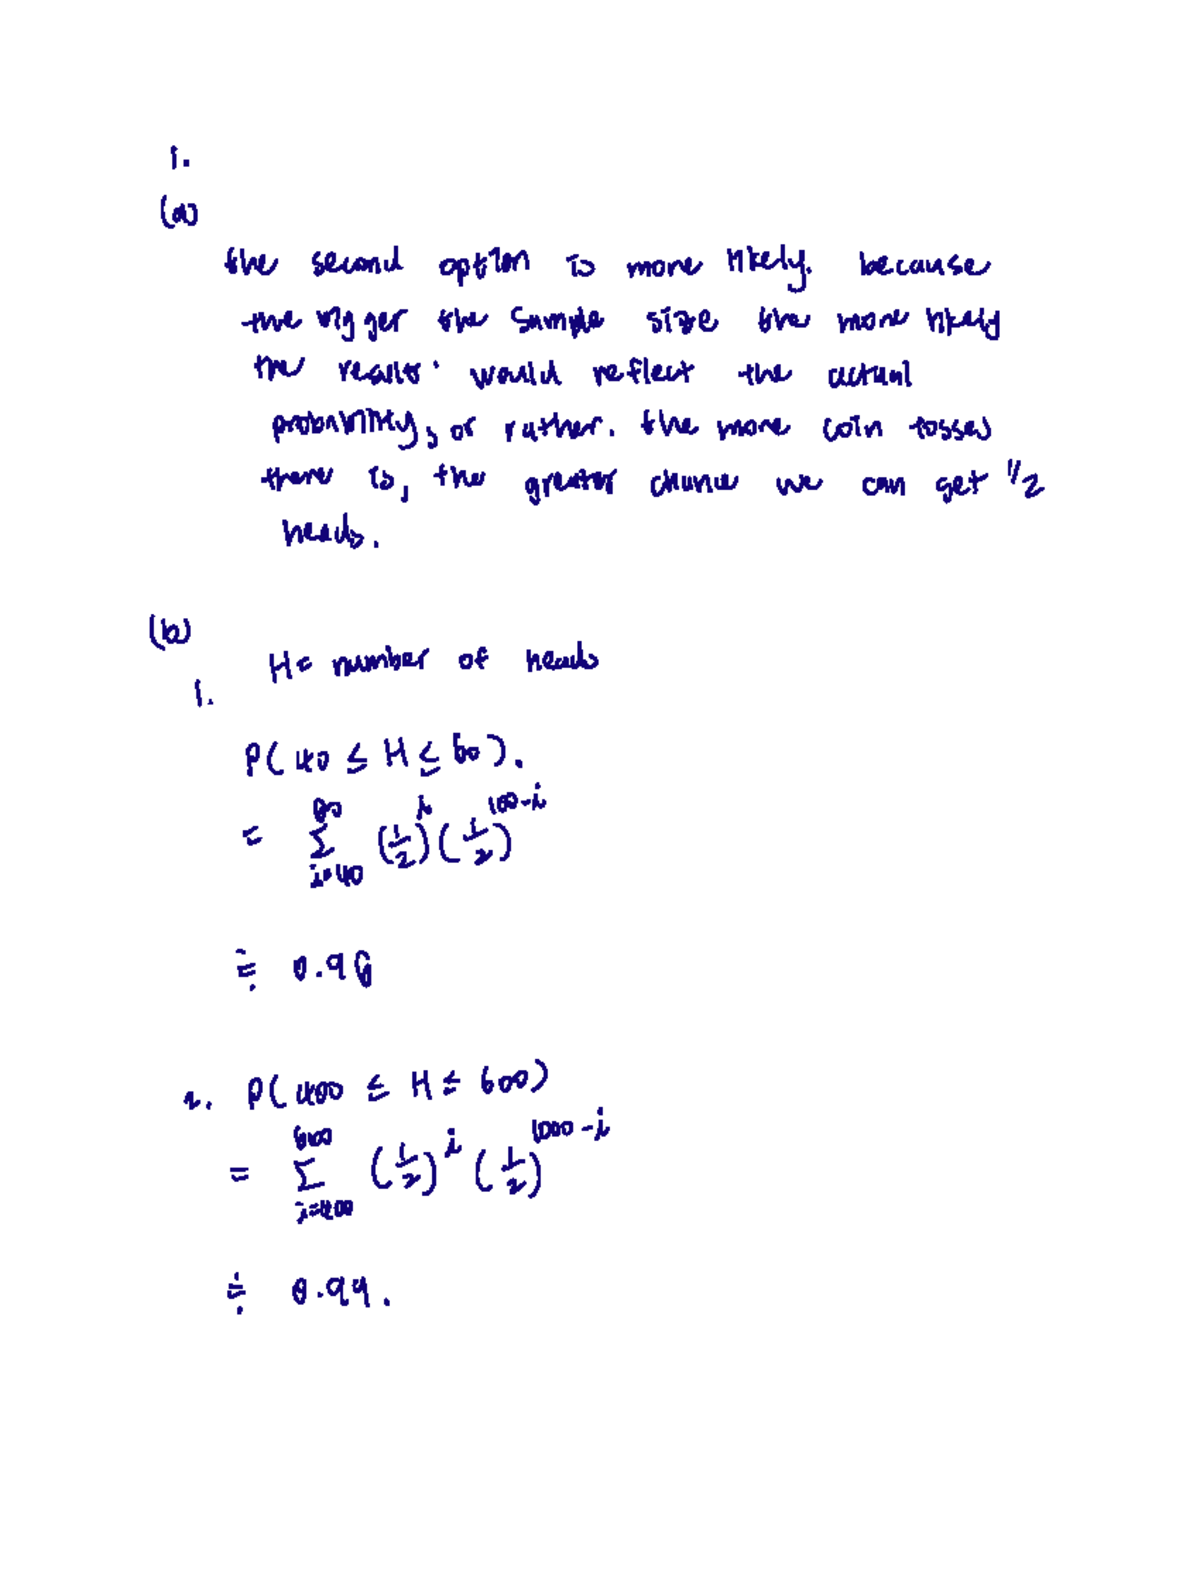 1.
(a)
the second option is more likely. because
the bigger the sample size the more likely
the results would reflect the actual
probability, or rather. the more coin tosses
there is, the greater chance we can get 1/2
heads.
(b)
H = number of heads
1.
P( 40 ≤ H ≤ 60 ).
= ∑_{i=40}^{60} (1/2)^i (1/2)^{100-i}
≐ 0.96
2. P( 400 ≤ H ≤ 600 )
= ∑_{i=400}^{600} (1/2)^i (1/2)^{1000-i}
≐ 0.99.